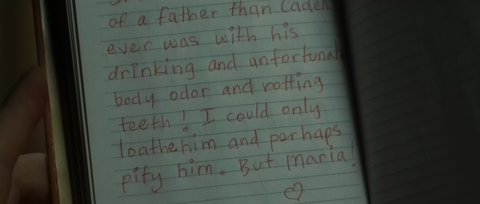 of a father than Caden
ever was with his
drinking and unfortunate
body odor and rotting
teeth! I could only
loathe him and perhaps
pity him. But Maria!